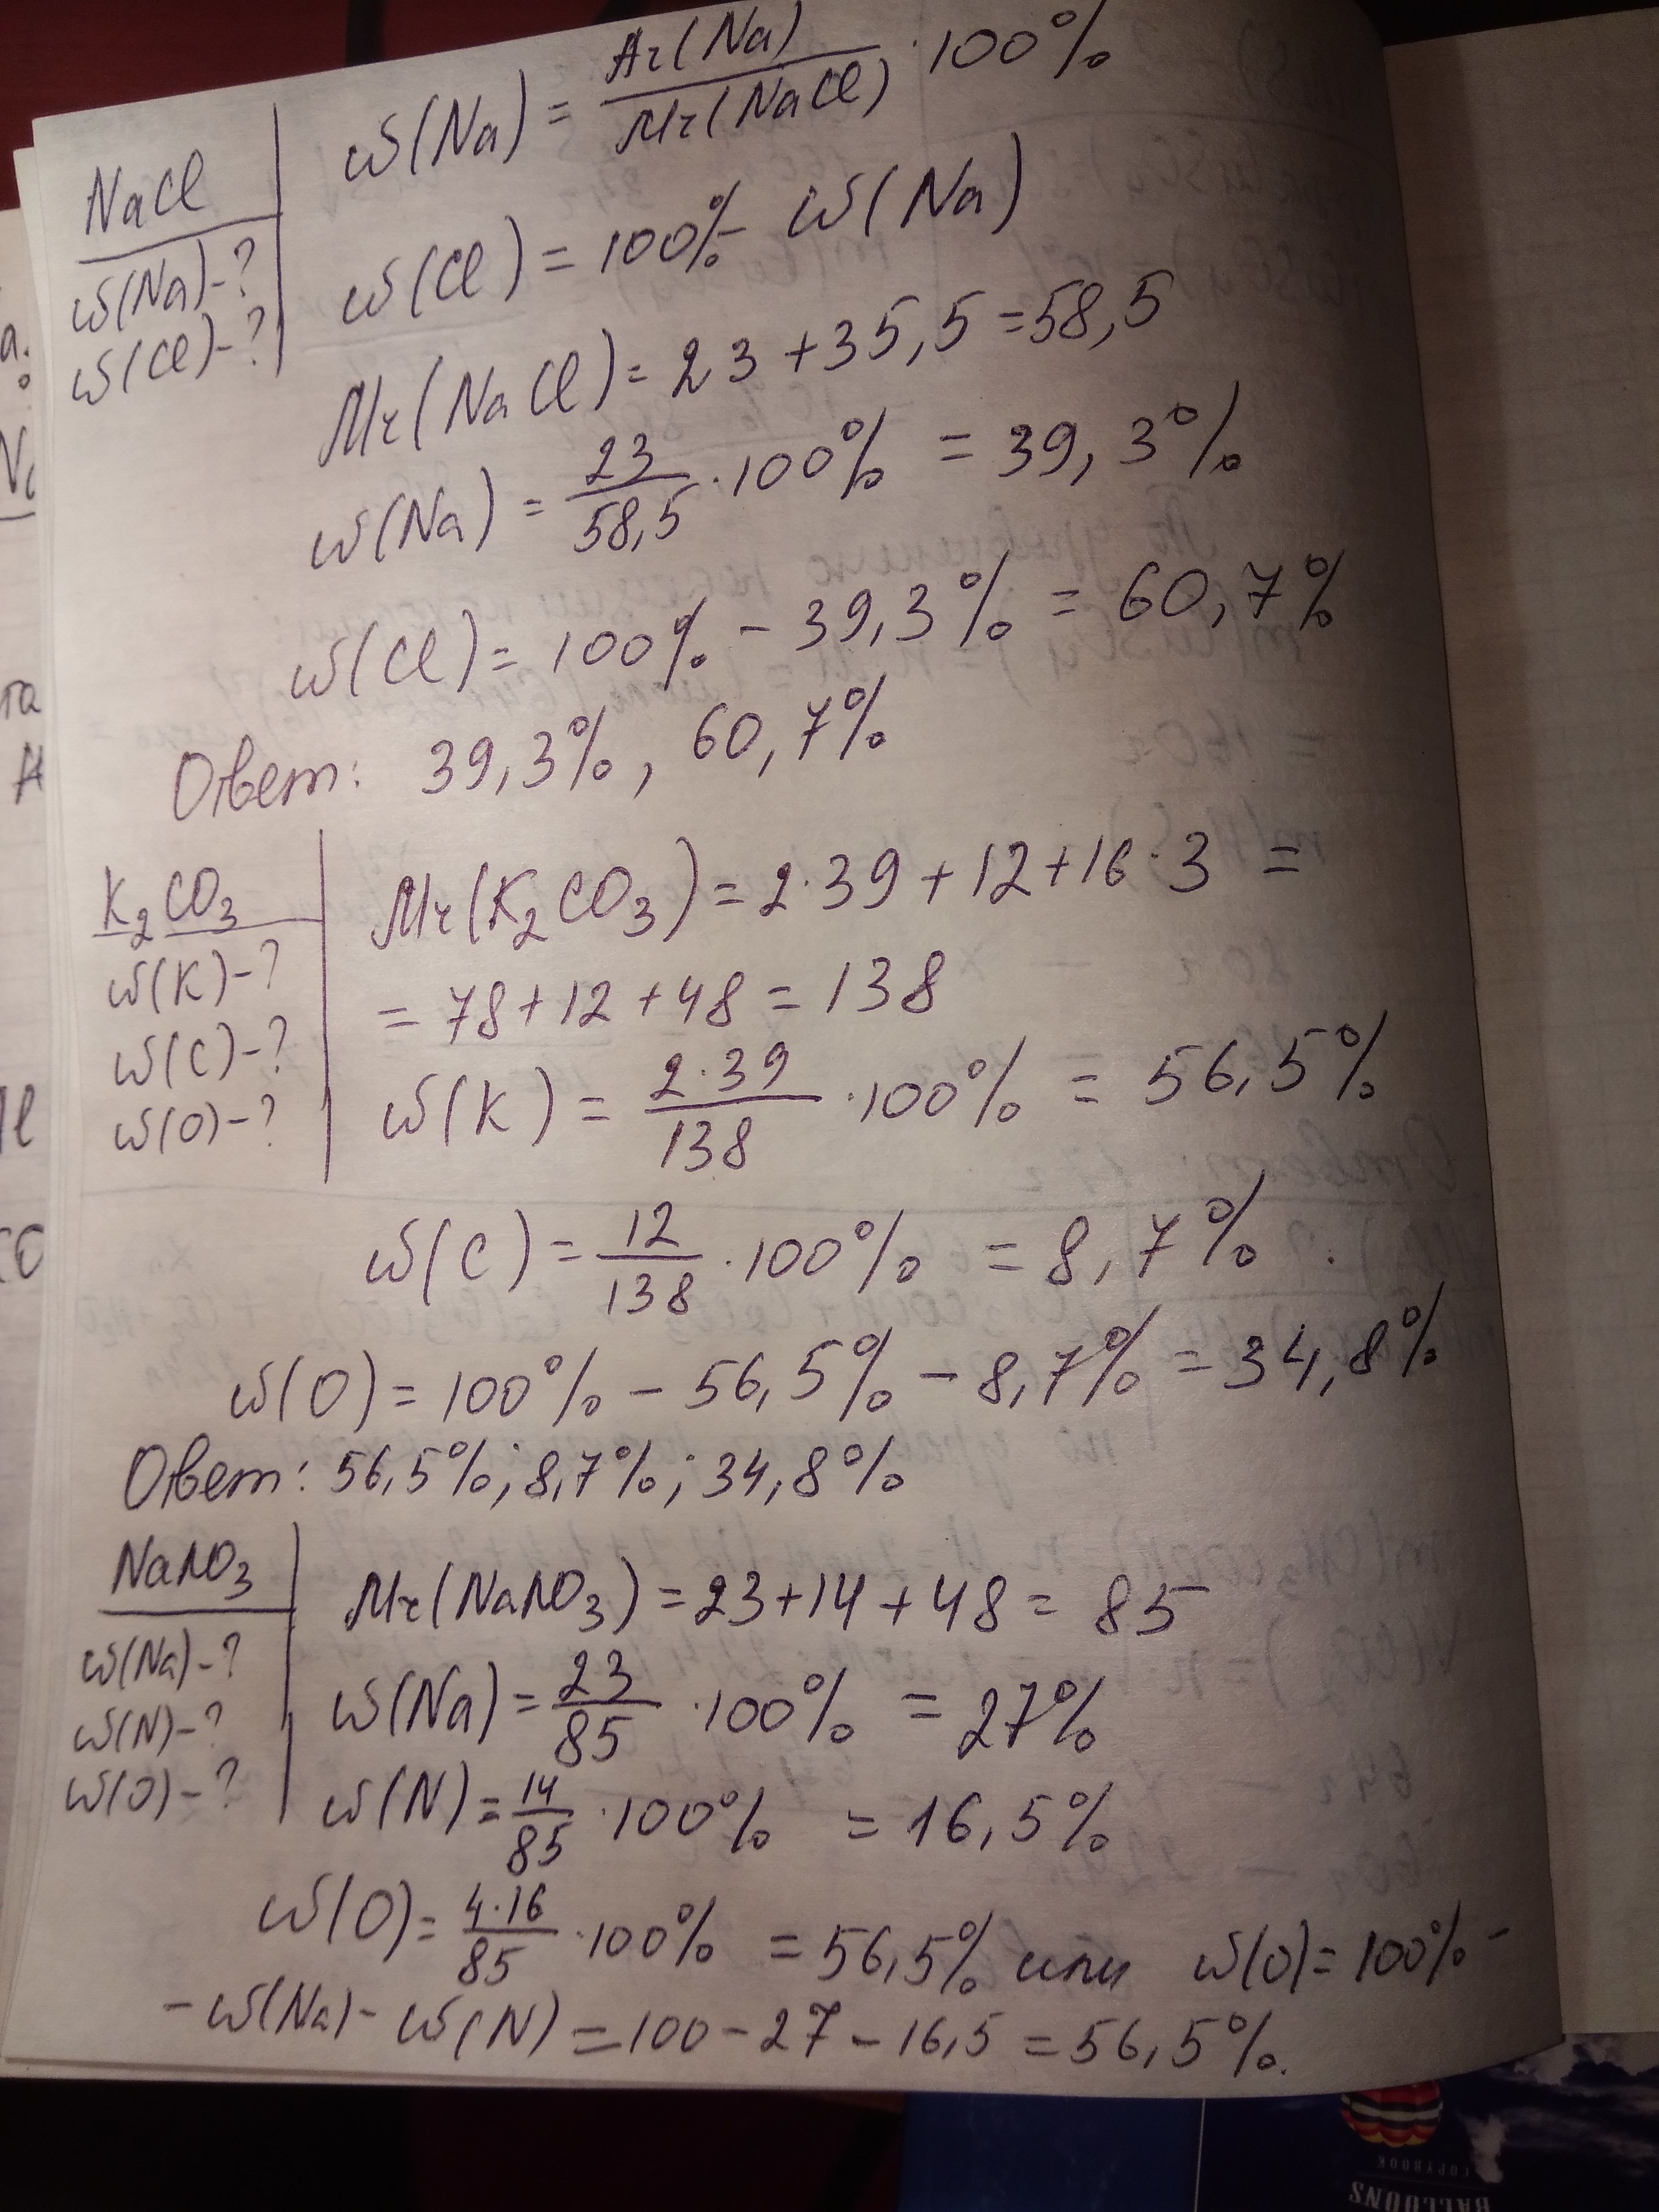 ω(Na) = Ar(Na)/Mr(NaCl) · 100%
NaCl
ω(Na)-?
ω(Cl)-?
ω(Cl) = 100% - ω(Na)
Mr(NaCl) = 23 + 35,5 = 58,5
ω(Na) = 23/58,5 · 100% = 39,3%
ω(Cl) = 100% - 39,3% = 60,7%
Ответ: 39,3%, 60,7%
K₂CO₃
ω(K)-?
ω(C)-?
ω(O)-?
Mr(K₂CO₃) = 2·39 + 12 + 16·3 =
= 78 + 12 + 48 = 138
ω(K) = 2·39/138 · 100% = 56,5%
ω(C) = 12/138 · 100% = 8,7%.
ω(O) = 100% - 56,5% - 8,7% = 34,8%
Ответ: 56,5%; 8,7%; 34,8%
NaNO₃
ω(Na)-?
ω(N)-?
ω(O)-?
Mr(NaNO₃) = 23 + 14 + 48 = 85
ω(Na) = 23/85 · 100% = 27%
ω(N) = 14/85 · 100% = 16,5%
ω(O) = 4·16/85 · 100% = 56,5% или ω(O) = 100% -
- ω(Na) - ω(N) = 100 - 27 - 16,5 = 56,5%.
COPYBOOK
BALLOONS